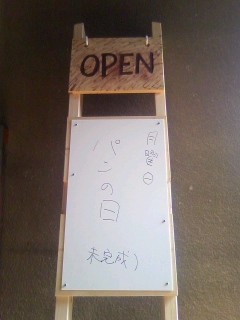 OPEN
月曜日
パンの日
未完成)